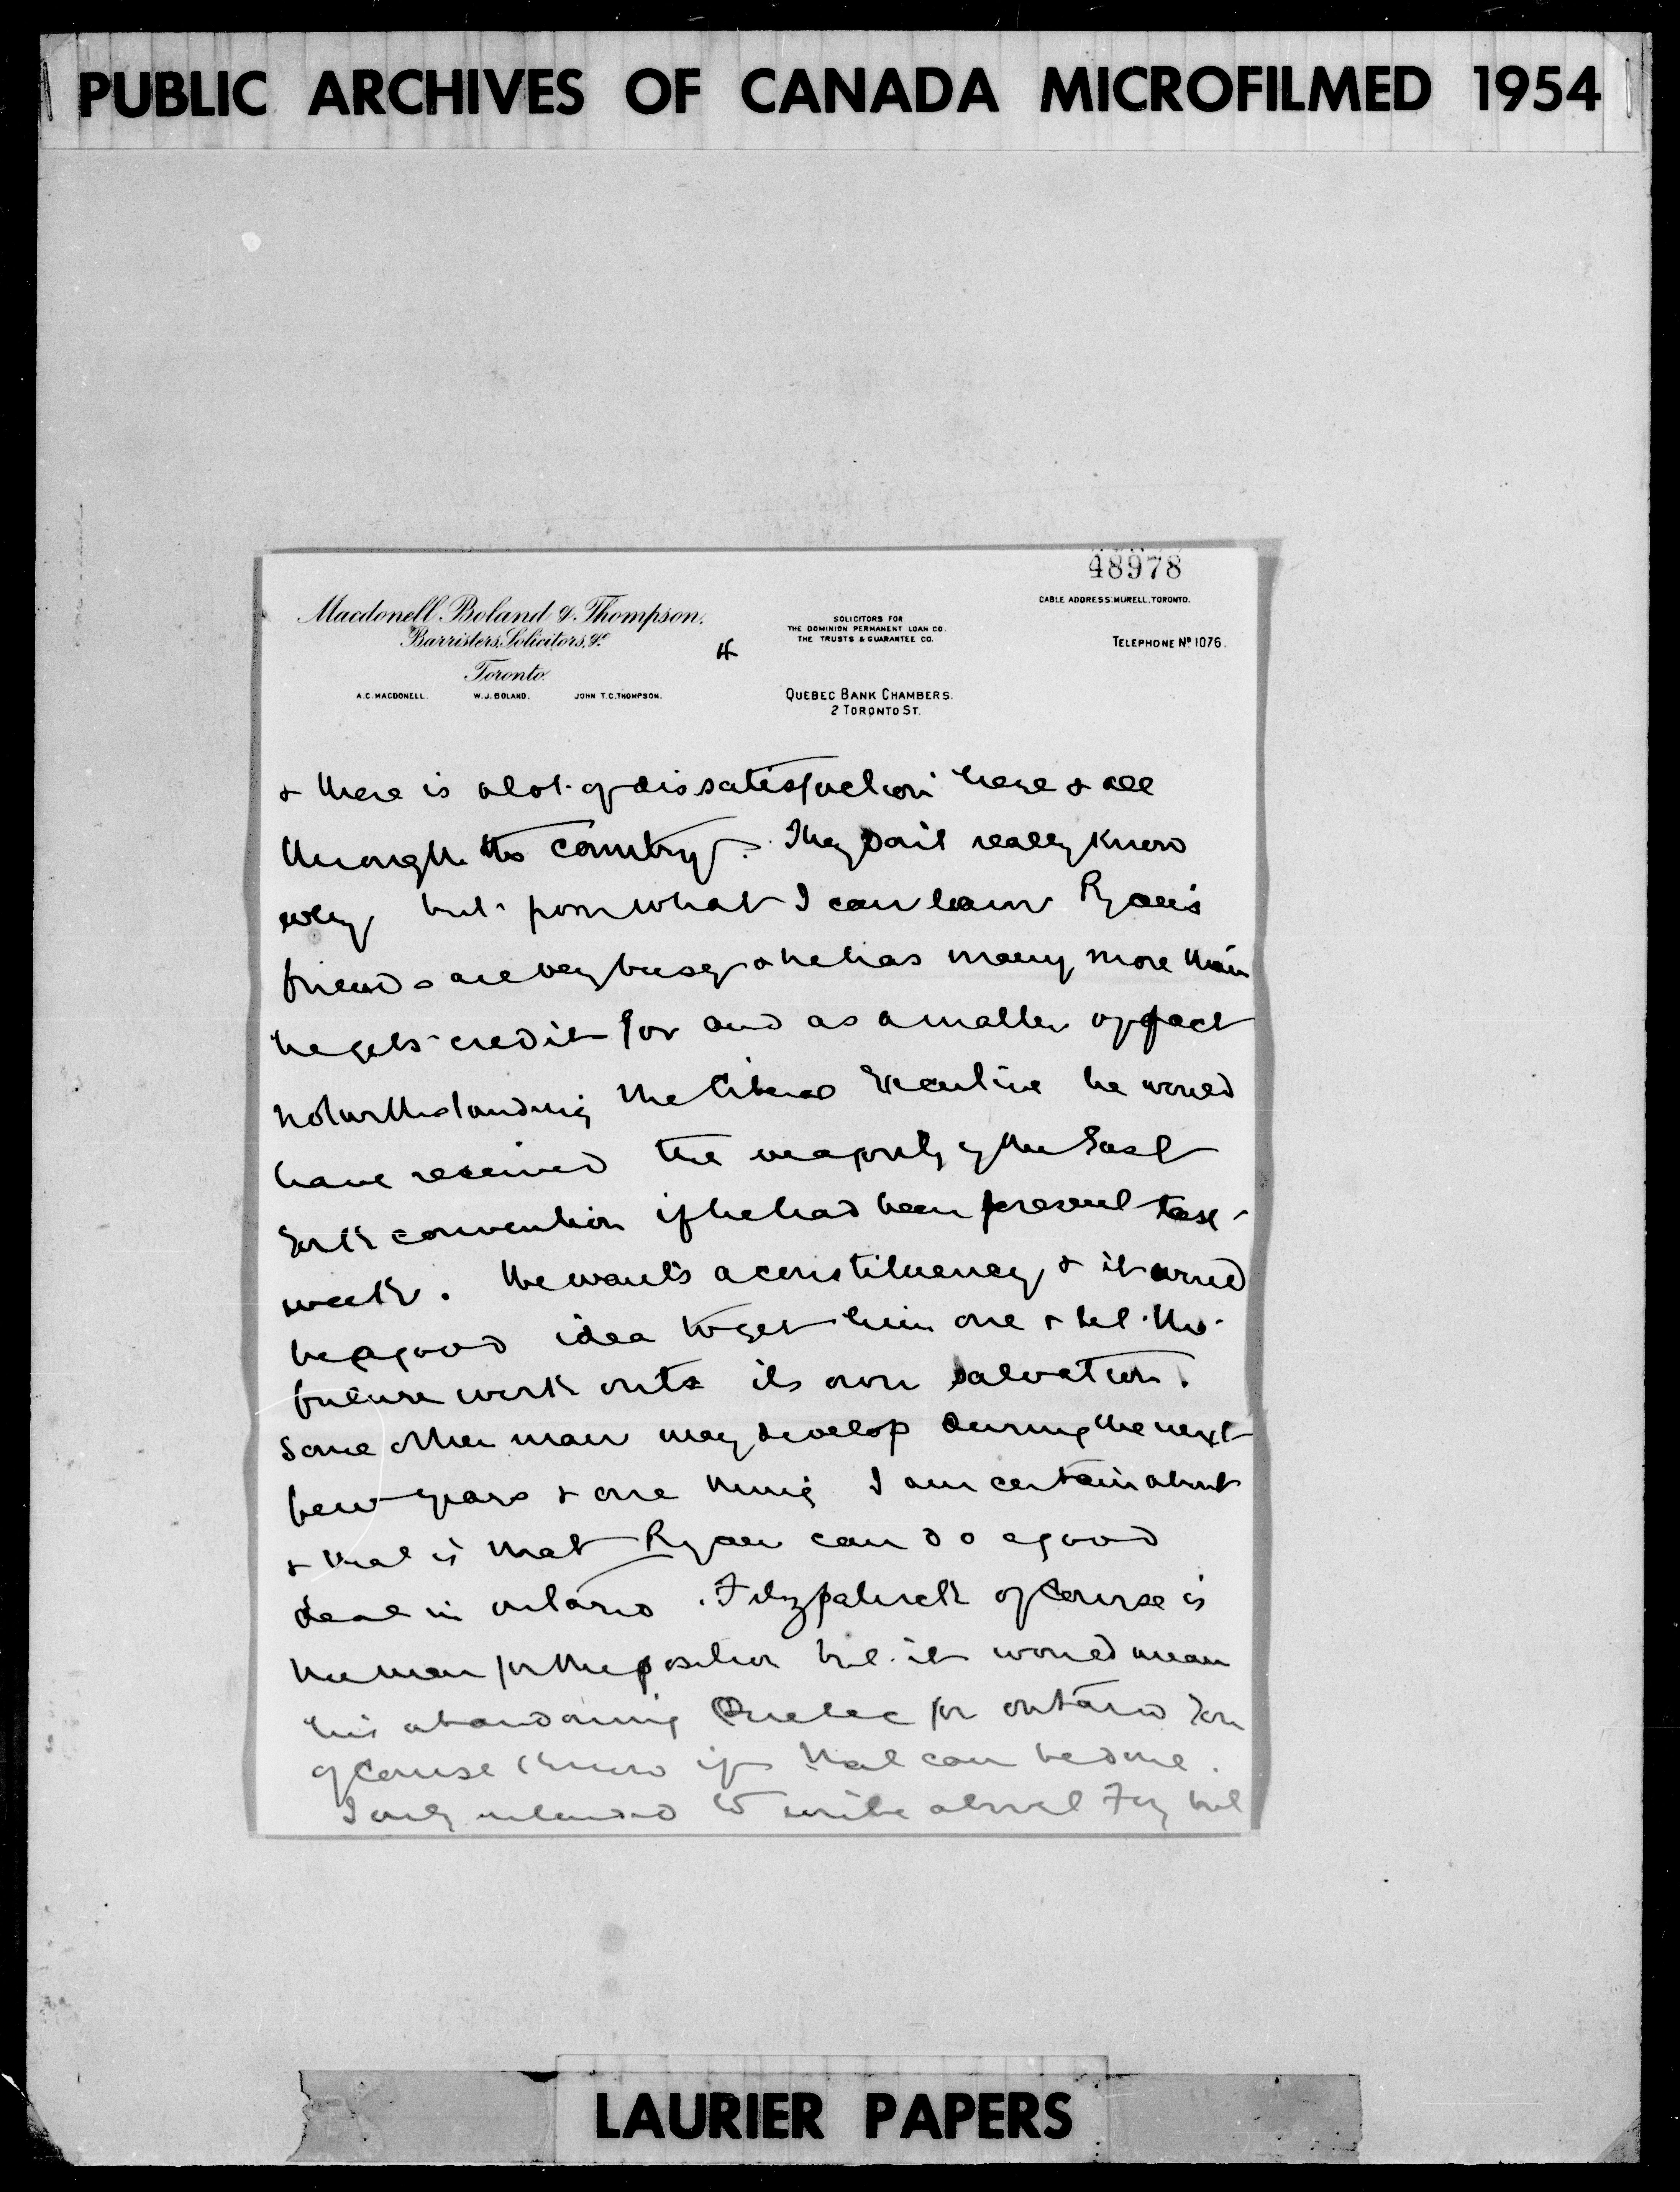 PUBLIC ARCHIVES OF CANADA MICROFILMED 1954
48978
Macdonell, Boland & Thompson.
Barristers, Solicitors, &c
Toronto.
A.C. MACDONELL. W.J. BOLAND. JOHN T.C. THOMPSON.
SOLICITORS FOR
THE DOMINION PERMANENT LOAN CO.
THE TRUSTS & GUARANTEE CO.
QUEBEC BANK CHAMBERS.
2 TORONTO ST.
CABLE ADDRESS: MURELL, TORONTO.
TELEPHONE No. 1076.
& there is a lot of dissatisfaction here & all
through the country. They don't really know
why but from what I can learn Ryan's
friends are very busy & he has many more than
he gets credit for and as a matter of fact
notwithstanding the Liberal Executive he would
have received the majority of the East
York convention if he had been present last
week. He wants a constituency & it would
be a good idea to get him one & let the
future work out its own salvation.
Some other man may develop during the next
few years & one thing I am certain about
& that is that Ryan can do a good
deal in Ontario. Fitzpatrick of course is
the man for the position but it would mean
his abandoning Quebec for Ontario You
of course know if that can be done.
I only intended to write about Foy but
LAURIER PAPERS